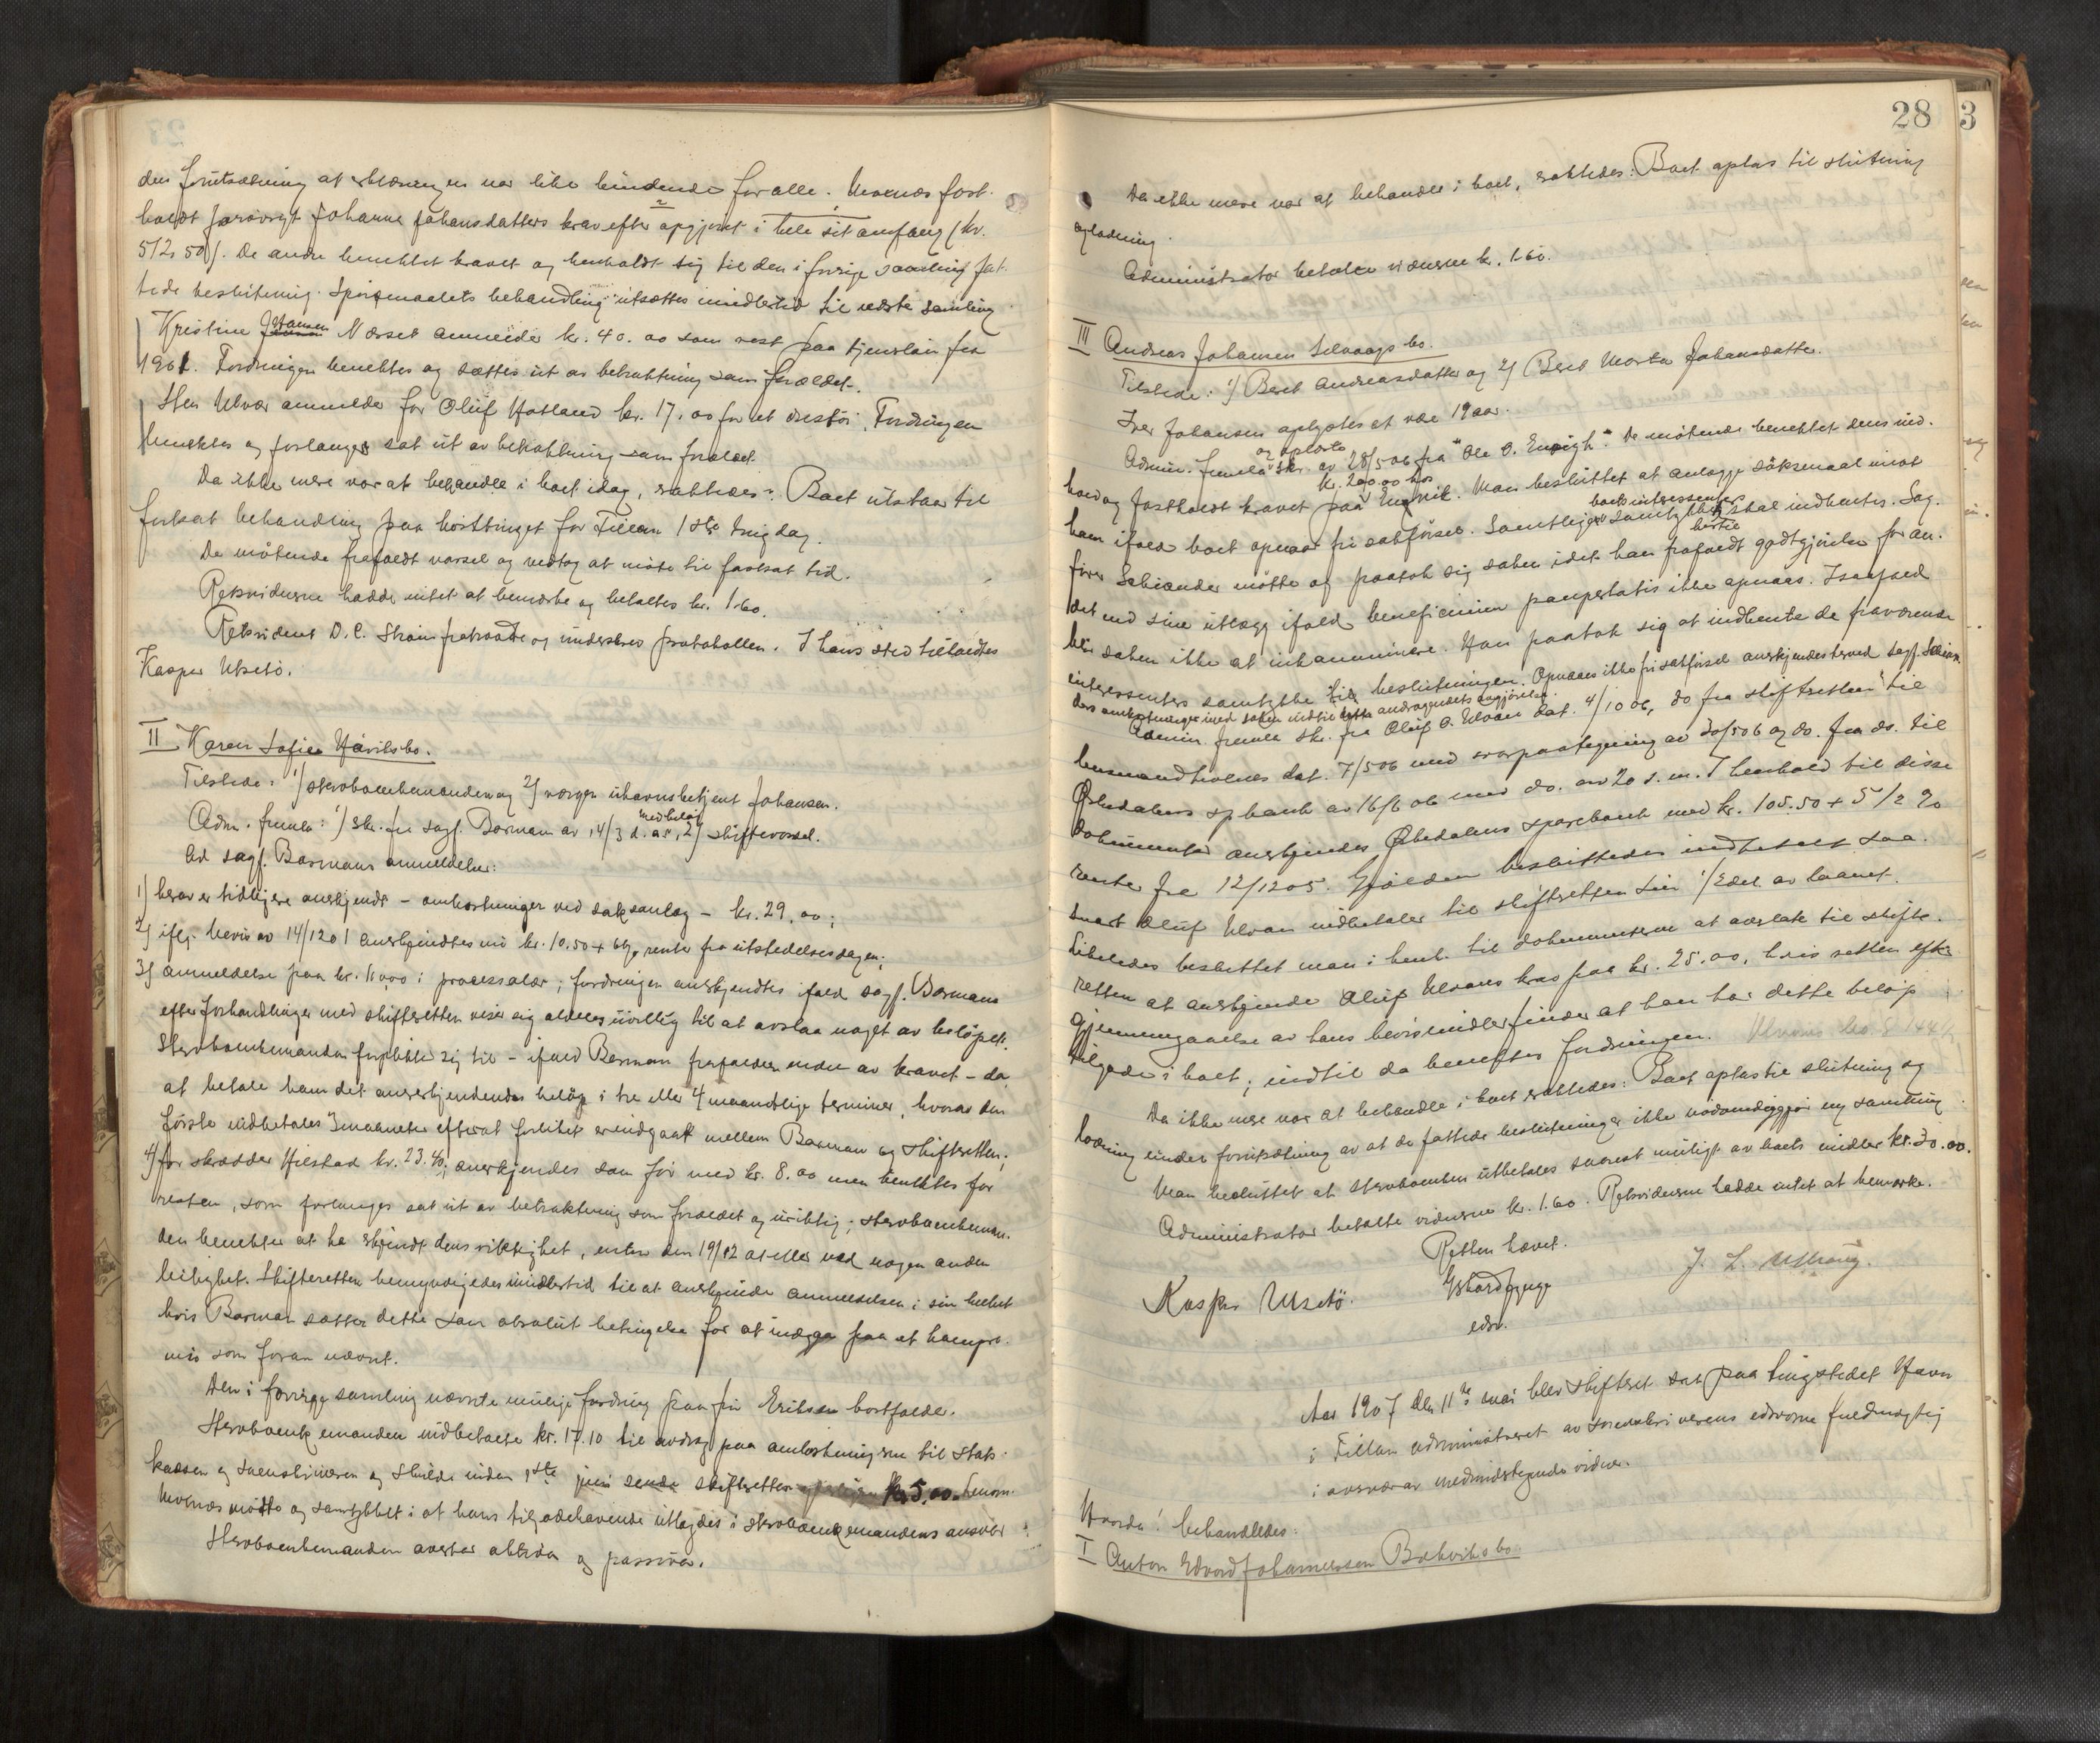 den forutsætning at erklæringen var like bindende for alle. Ulvenæs fast-
holdt forøvrigt Johanne Johansdatters krav efter opgjøret i hele sit omfang (kr.
512,50). De andre benektet kravet og henholdt sig til den i forrige samling fat-
tede beslutning. Spørsmaalets behandling utsættes imidlertid til næste samling.
Kristine Hansen Næsset anmelder kr. 40.00 som rest paa tjenstløn fra
1901. Fordringen benektes og sættes ut av betraktning som forældet.
Sten Ulvær anmelder for Oluf Hatland kr. 17.00 for et Fordringen
benektes og forlanges sat ut av betraktning som forældet.
Da ikke mere var at behandle i boet idag, sattedes: Boet utstaar til
fortsat behandling paa høsttinget for Fillan 1ste tingdag.
De møtende frafaldt varsel og vedtog at møte til fastsat tid.
Retsvidnerne hadde intet at bemerke og betaltes kr. 1.60.
Retsvidnet D. C. Strøm fratraadte og underskrev protokollen. I hans sted tiltraadtes
Kasper Utsetø.
II Karen Sofie Haviks bo.
Tilstede: 1) stervboenkemanden og 2) værgen utbetjent Johansen.
Adm. freml: 1) Skr. fra sagf. Borman av 14/3 d. a. med bilag, 2) skiftevarsel.
Ad sagf. Bormans anmeldelse:
1) krav er tidligere anerkjendt – omkostninger ved saksanlæg – kr. 29.00;
2) iflg. bevis av 14/1201 anerkjendtes med kr. 10.50 + 6% rente fra utstedelsesdagen;
3) anmeldelse paa kr. 11.00 i procesalær; fordringen anerkjendtes ifald sagf. Borman
efter forhandlinger med skifteretten viser sig aldeles uvillig til at avslaa noget av beløpet.
Stervboenkemanden forpliktet sig til – ifald Borman frafalder endel av kravet – da
at betale ham det anerkjendende beløp i tre eller 4 maandtlige terminer, hvorav den
første indbetales 3 maaneder efterat forliket er indgaat mellem Borman og skifteretten;
4) for skrædder Hilstad kr. 23.40; anerkjendes som før med kr. 8.00 men benektes for
resten, som forlanges sat ut av betraktning som forældet og uriktig; stervboenkeman-
den benekter at ha erkjendt dens riktighet, enten den 19/12 05 eller ved nogen anden
leilighet. Skifteretten bemyndigedes imidlertid til at anerkjende anmeldelsen i sin helhet
hvis Borman sætter dette som absolut betingelse for at indgaa paa et kompro-
mis som foran nævnt.
Den i forrige samling nævnte mulige fordring paa fru Eriksen bortfalder.
Stervboenkemanden indbetalte kr. 17.10 til avdrag paa omkostningerne til stats-
kassen og sorenskriveren og skulde inden 1ste juni sende skifteretten kr. 5.00. Lensm.
Ulvenæs møtte og samtykket i at hans tilgodehavende utlægdes i stervboenkemandens ansvar.
Stervboenkemanden overtar aktiva og passiva.
28
3
Da ikke mere var at behandle i boet, sattedes: Boet optas til slutning
og lodning.
Administrator betalte vidnerne kr. 1.60.
III Andreas Johansen Selvaags bo.
Tilstede: 1) Berit Andreasdatter og 2) Berit Marta Johansdatter.
Iver Johansen oplystes at være 19 aar.
Admin. fremla og oplæste skr. av 28/5 06 fra "Ole O. Ensvigh". De møtende benektet dens ind-
hold og fastholdt kravet paa kr. 200.00 hos Ensvik. Man besluttet at anlægge søksmaal mot
ham ifald boet opnaar fri sakførsel. Samtlige boets interessenters samtykke hertil skal indhentes. Sag-
fører Schiander møtte og paatok sig saken idet han frafaldt godtgjørelse for an-
det end sine utlæg ifald beneficium paupertatis ikke opnaas. Isaafald
blir saken ikke at inkaminere. Han paatok sig at indhente de fraværende
interessenters samtykke til beslutningen. Opnaaes ikke fri sakførsel anerkjendes herved sagf. Schian-
ders omkostninger med saken indtil dette andragendets avgjørelse.
Admin. fremla skr. fra Oluf O. Ulvaan dat. 4/10 06, do fra skifteretten til
lensmand Ulvenæs dat. 7/5 06 med svarpaategning av 30/5 06 og do. fra ds. til
Ørkedalens spbank av 16/6 06 med do. av 20 s. m. I henhold til disse
dokumenter anerkjendes Ørkedalens sparebank med kr. 105.50 + 5 1/2 %
rente fra 12/12 05. Gjælden besluttedes indbetalt saa-
snart Oluf Ulvan indbetaler til skifteretten sin 1/2 del av laanet.
Likeledes besluttet man i henh. til dokumenterne at overlate til skifte-
retten at anerkjende Oluf Ulvans krav paa kr. 25.00, hvis retten efter
gjennemgaaelse av hans bevismidler finder at han har dette beløp
tilgode i boet; indtil da benektes fordringen.
Da ikke mere var at behandle i boet sattedes: Boet optas til slutning og
lodning under forutsætning av at de fattede beslutninger ikke nødvendiggjør ny samling.
Man besluttet at stervboenken utbetales snarest muligt av boets midler kr. 30.00.
Administrator betalte vidnerne kr. 1.60. Retsvidnerne hadde intet at bemerke.
Retten hævet.
Kasper Utsetø.
edsv.
J. L.
Aar 1907 den 11te mai blev skifteret sat paa tingstedet Havn
i Fillan administreret av sorenskriverens edsvorne fuldmægtig
i overvær av medundertegnede vidner.
Hvorda! behandledes:
I Anton Edvard Johannessen Bekviks bo.